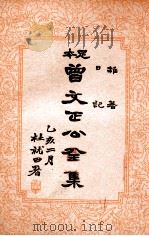 雜著
日記
足本
曾文正公全集
乙亥二月
杜就田署